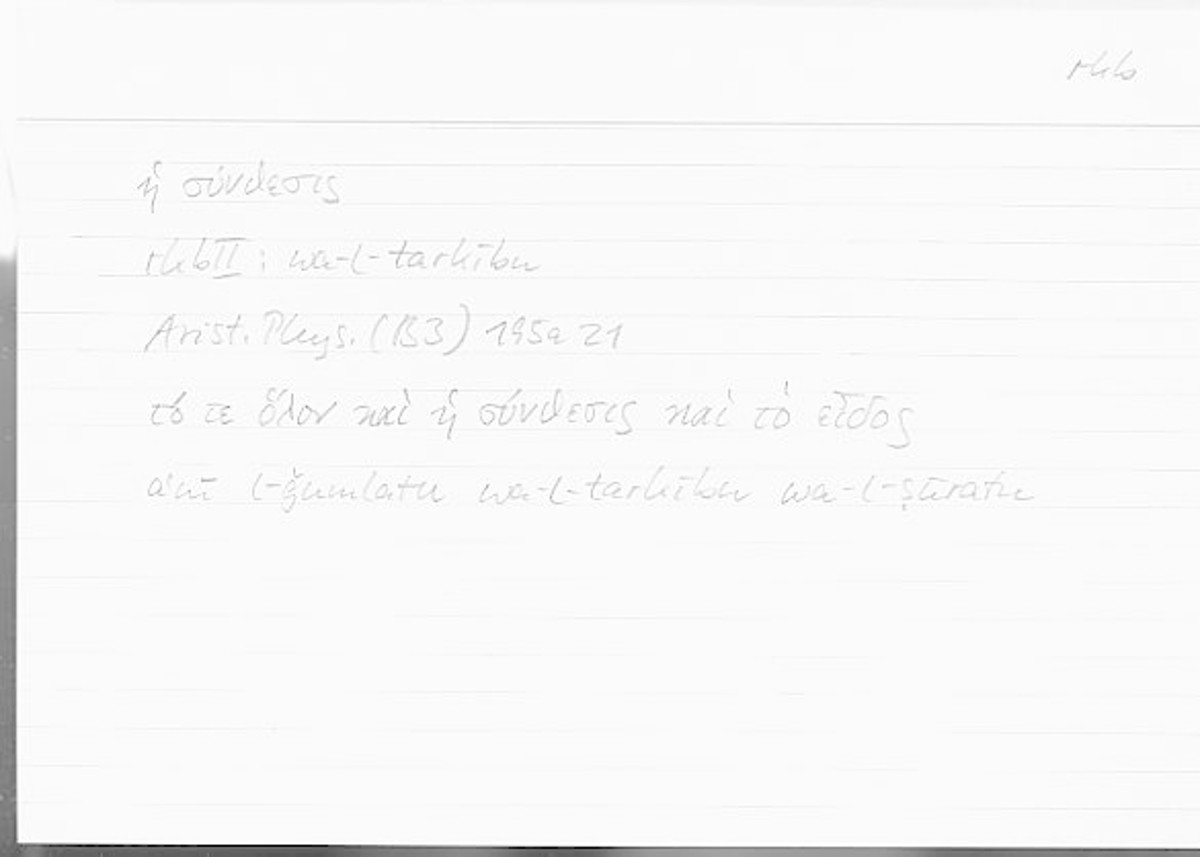 rkb
ἡ σύνθεσις
rkb II : wa-l-tarkību
Arist. Phys. (B3) 195a 21
τό τε ὅλον καὶ ἡ σύνθεσις καὶ τὸ εἶδος
aʿnī l-ǧumlatu wa-l-tarkību wa-l-ṣūratu